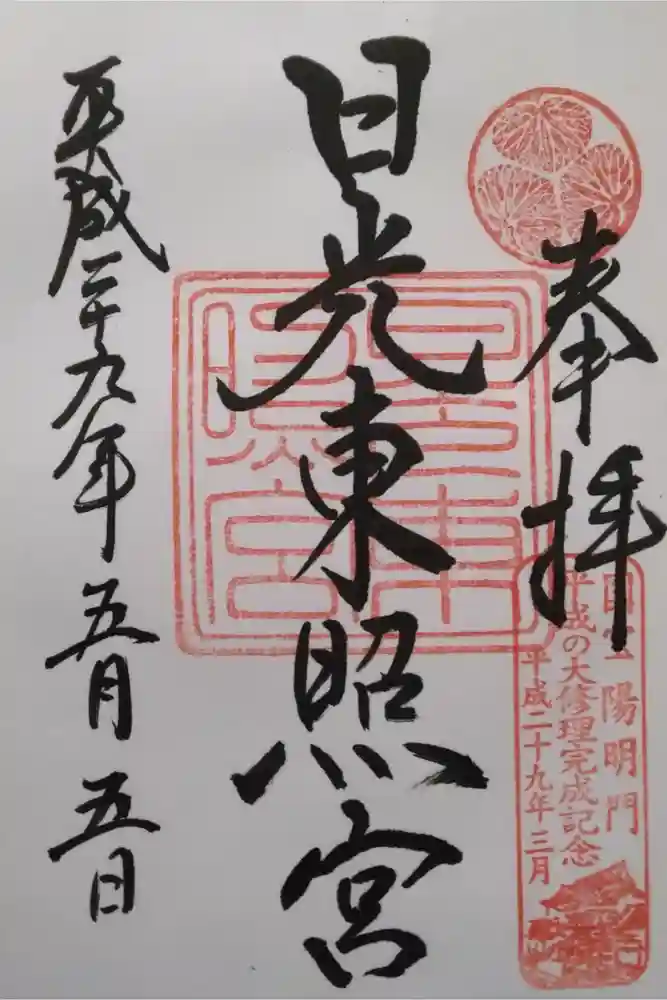 奉拝
日光東照宮
平成二十九年五月五日
国宝陽明門
平成の大修理完成記念
平成二十九年三月